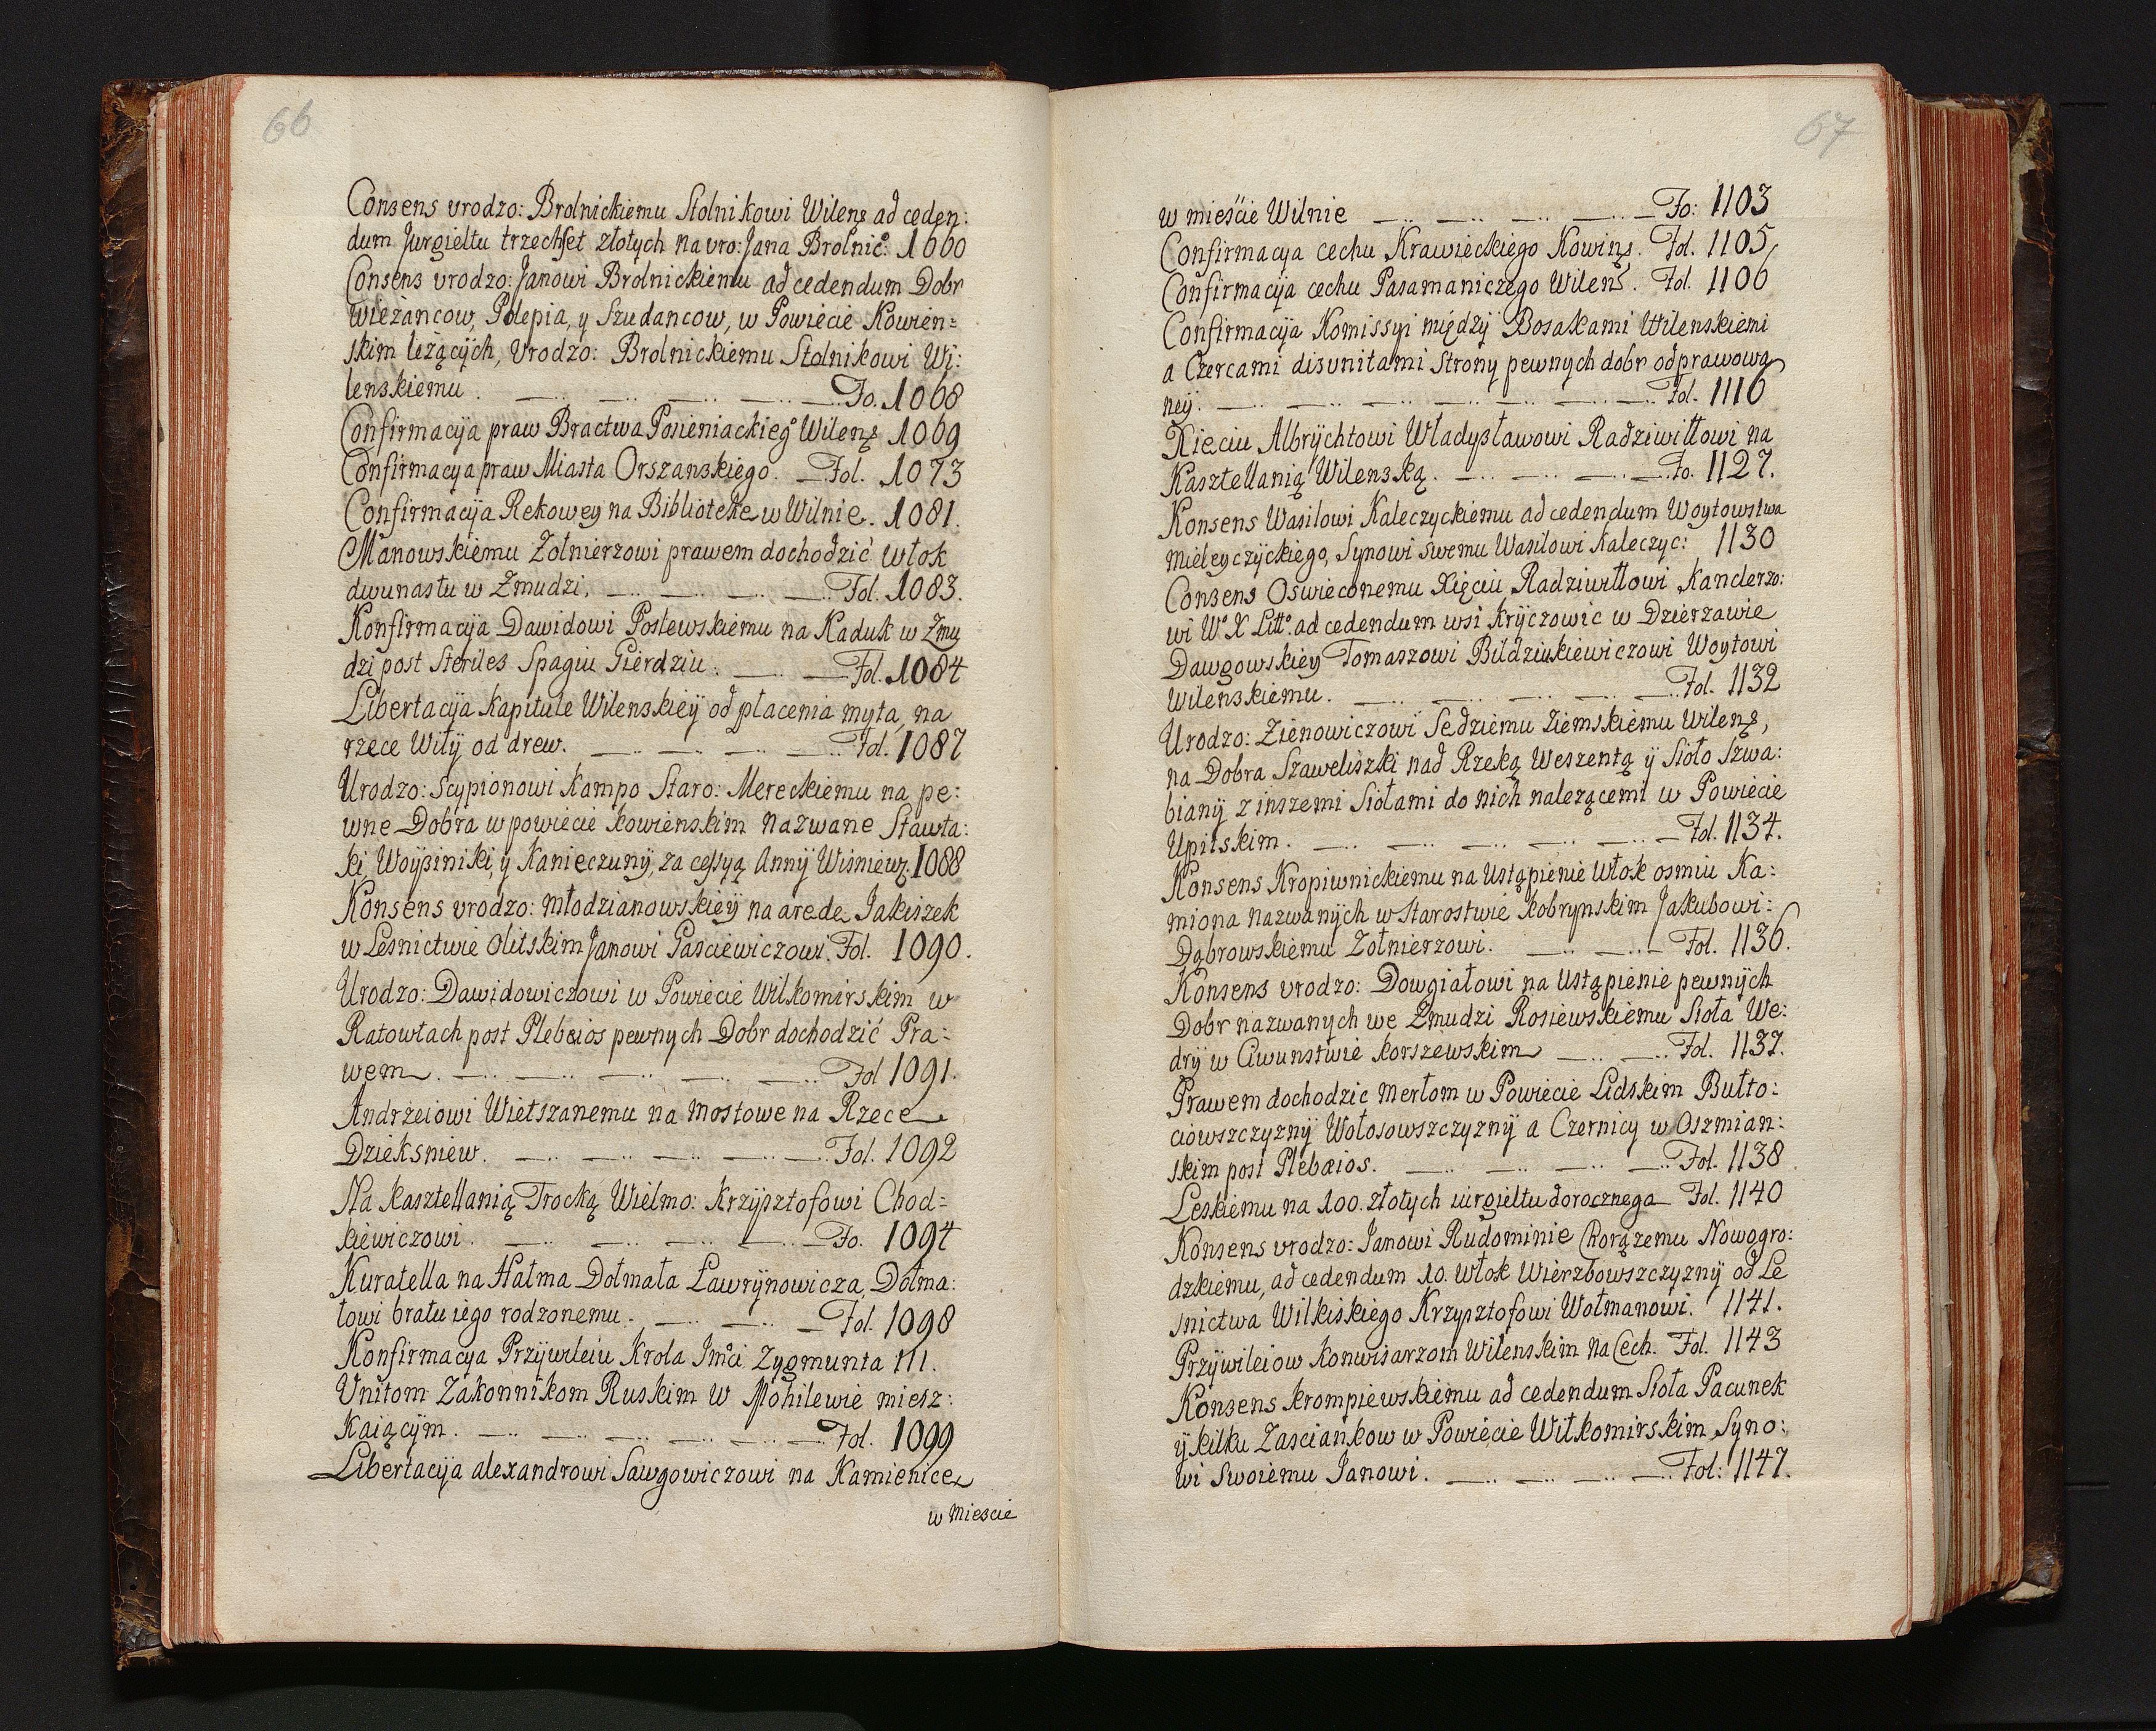 66
Consens vrodzo: Brolnickiemu Stolnikowi Wilens ad ceden:
dum Jurgieltu trzechset złotych na vro: Jana Brolnic: 1060
Consens vrodzo: Janowi Brolnickiemu ad cedendum Dobr
Wieżancow, Polepia, y Szudancow, w Powiecie Kowien=
skim leżących, Vrodzo: Brolnickiemu Stolnikowi Wi:
lenskiemu. Fo. 1068
Confirmacÿa praw Bractwa Wilens 1069
Confirmacya praw Miasta Orszanskiego. Fol. 1073
Confirmacÿa Rekowey na Bibliotekę w Wilnie. 1081.
Manowskiemu Żołnierzowi prawem dochodzić włok
dwunastu w Zmudzi. Fol. 1083.
Konfirmacÿa Dawidowi Poslewskiemu na Kaduk w Zmu
dzi post Steriles Spagiu Gierdziu. Fol. 1084
Libertacÿa Kapitule Wilenskieÿ od płacenia myta na
rzece Wilÿ od drew. Fol. 1087
Urodzo: Scypionowi Kampo Staro: Mereckiemu na pe:
wne Dobra w powiecie kowienskim nazwane Sławła:
ki, Woÿsiniki, y Kanieczunÿ, za cessyą Annÿ Wisniew. 1088
Konsens vrodzo: Młodzianowskieÿ na arędę Jakiszek
w Lesnictwie Olitskim Janowi Pasciewiczowi. Fol. 1090.
Urodzo: Dawidowiczowi w Powiecie Wilkomirskim w
Ratowtach post Plebeios pewnych Dobr dochodzić Pra:
wem. Fol 1091.
Andrzeiowi Wietszanemu na mostowe na Rzece
Dzieksniew. Fol. 1092
Na kasztellanią Trocką Wielmo: Krzÿsztofowi Chod=
kiewiczowi. Fo. 1094
Kuratella na Hałma Dołmata Ławrÿnowicza, Dołma:
towi bratu iego rodzonemu. Fol. 1098
Konfirmacya Przÿwileiu Krola Jmci Zygmunta III.
Unitom Zakonnikom Ruskim w Mohilewie miesz:
kaiącÿm. Fol. 1099
Libertacÿa alexandrowi Sawgowiczowi na Kamienice
w Miescie
67
w mieście Wilnie Fo: 1103
Confirmacya cechu Krawieckiego Kowins. Fol. 1105
Confirmacÿa cechu Pasamaniczego Wilens. Fol. 1106
Confirmacÿa Komissyi międzÿ Bosakami Wilenskiemi
a Czercami disunitami Strony pewnych dobr odprawowa
neÿ. Fol. 1116
Xięciu Albrÿchtowi Władysławowi Radziwiłłowi na
Kasztellanią Wilenską. Fo. 1127.
Konsens Wasilowi Kaleczyckiemu ad cedendum Woytowstwa
Mieleyczÿckiego, Synowi swemu Wasilowi Kaleczyc: 1130
Consens Oswieconemu Xięciu Radziwiłłowi Kanclerzo:
wi W° X Litt° ad cedendum wsi Krÿczowic w Dzierzawie
Dawgowskiey Tomaszowi Bildziukiewiczowi Woytowi
Wilenskiemu. Fol. 1132
Urodzo: Zienowiczowi Sędziemu Ziemskiemu Wilens,
na Dobra Szaweliszki nad Rzeką Weszentą ÿ Sioło Szwa:
bianÿ z inszemi Siołami do nich nalezącemi w Powiecie
Upitskim. Fol. 1134.
Konsens Kropiwnickiemu na Ustąpienie włok osmiu Ka:
miona nazwanÿch w Starostwie kobrynskim Jakubowi:
Dąbrowskiemu Zołnierzowi. Fol. 1136.
Konsens vrodzo: Dowgiałowi na Ustąpienie pewnÿch
Dobr nazwanych we Zmudzi Rosiewskiemu Sioła We:
drÿ w Ciwunstwie korszewskim Fol. 1137.
Prawem dochodzic Mertom w Powiecie Lidskim Bułto:
ciowszczyznÿ Wołosowszczyznÿ a Czernicy w Oszmian:
skim post Plebæios. Fol. 1138
Leskiemu na 100. złotych iurgieltu dorocznego Fol. 1140
Konsens vrodzo: Janowi Rudominie Chorązemu Nowogro:
dzkiemu, ad cedendum 10. włok Wierzbowszczyznÿ od Le
snictwa Wilkiskiego Krzysztofowi Wołmanowi. 1141.
Przÿwileiow Konwisarzom Wilenskim na Cech. Fol. 1143
Konsens krompiewskiemu ad cedendum Sioła Pacunek
ÿ kilku Zasciankow w Powiecie Wiłkomirskim Syno:
wi Swoiemu Janowi. Fol: 1147.